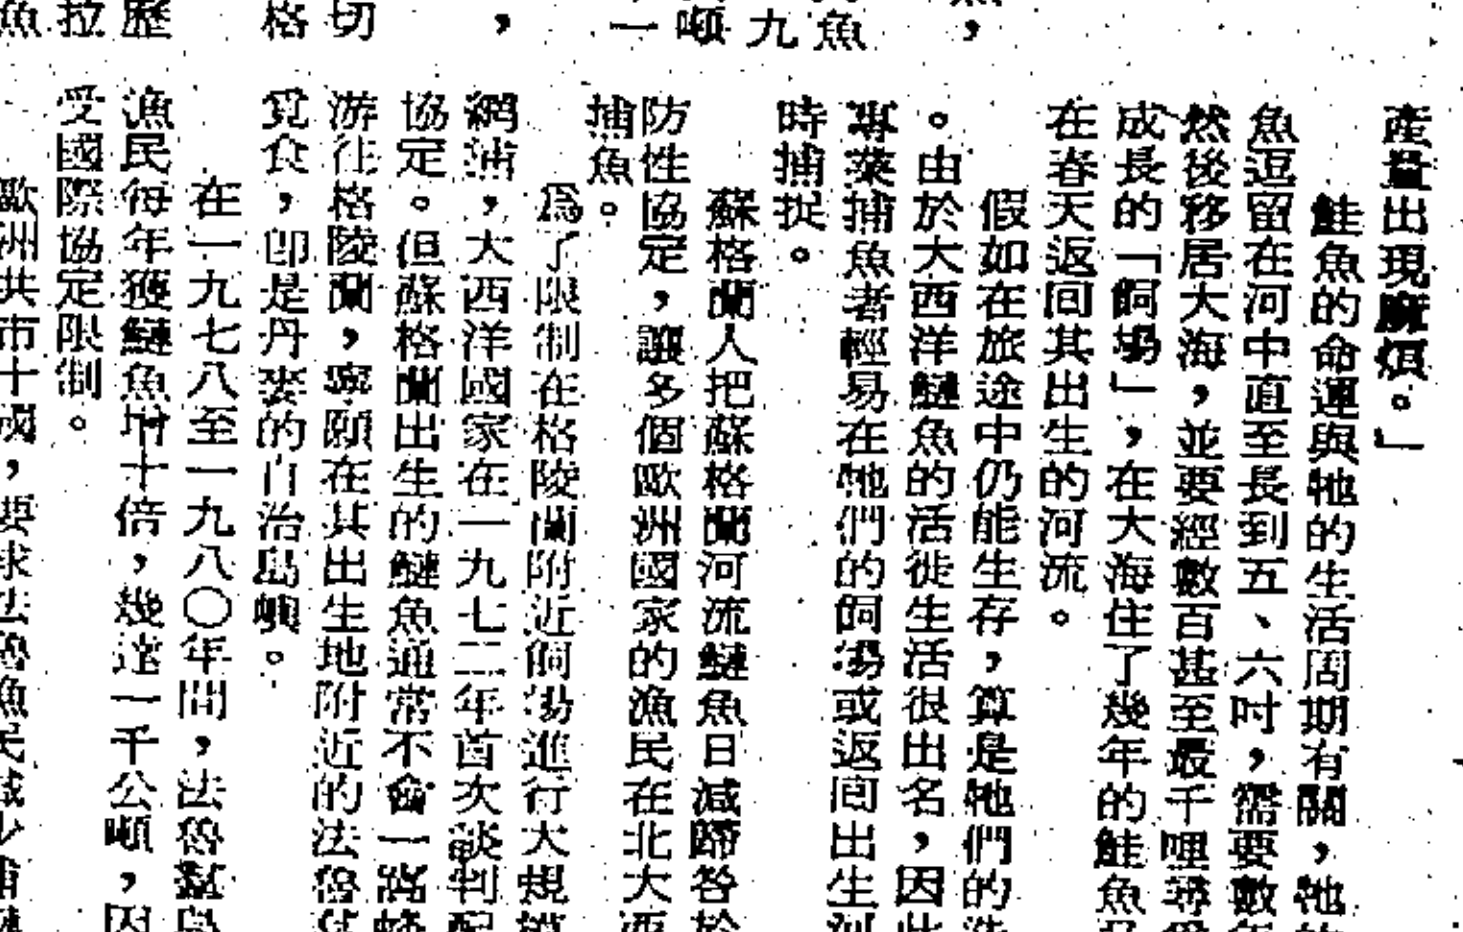 魚
九
噸
一
切
格
歷
拉
魚
產量出現麻煩。」
鮭魚的命運與牠的生活周期有關，牠
魚逗留在河中直至長到五、六吋，需要數年
然後移居大海，並要經數百甚至最千哩尋
成長的「飼場」，在大海住了幾年的鮭魚
在春天返回其出生的河流。
假如在旅途中仍能生存，算是牠們的
。由於大西洋鰱魚的活徙生活很出名，因此
專業捕魚者輕易在牠們的飼場或返回出生河
時捕捉。
蘇格蘭人把蘇格蘭河流鰱魚日減歸咎於
防性協定，讓多個歐洲國家的漁民在北大西
捕魚。
為了限制在格陵蘭附近飼場進行大規模
網捕，大西洋國家在一九七二年首次談判配
協定。但蘇格蘭出生的鰱魚通常不會一窩蜂
游往格陵蘭，寧願在其出生地附近的法魯
覓食，即是丹麥的自治島嶼。
在一九七八至一九八〇年間，法魯羣島
漁民每年獲鰱魚增十倍，幾達一千公噸，因
受國際協定限制。
歐洲共市十國，要求法魯漁民減少捕